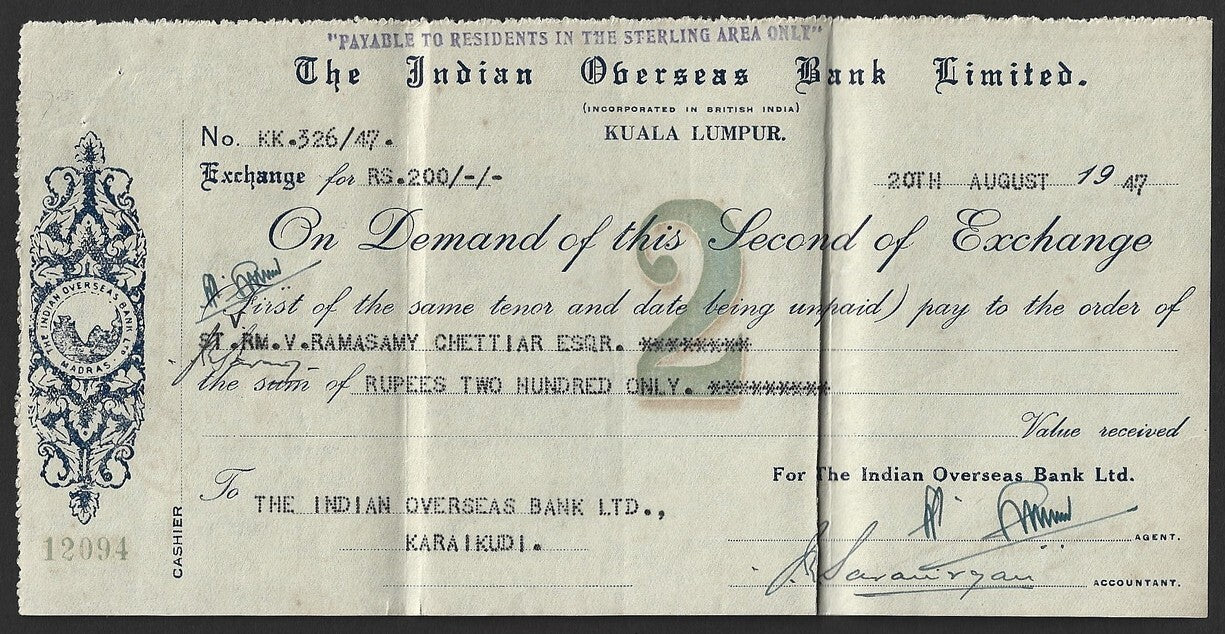 "PAYABLE TO RESIDENTS IN THE STERLING AREA ONLY"
The Indian Overseas Bank Limited.
(INCORPORATED IN BRITISH INDIA)
KUALA LUMPUR.
No. KK.326/47.
Exchange for RS.200/-/-
20TH AUGUST 1947
2
On Demand of this Second of Exchange
First of the same tenor and date being unpaid) pay to the order of
ST.RM.V.RAMASAMY CHETTIAR ESQR. **********
the sum of RUPEES TWO HUNDRED ONLY. ***********
Value received
For The Indian Overseas Bank Ltd.
To THE INDIAN OVERSEAS BANK LTD.,
KARAIKUDI.
AGENT.
ACCOUNTANT.
CASHIER
THE INDIAN OVERSEAS BANK LTD
MADRAS
12094